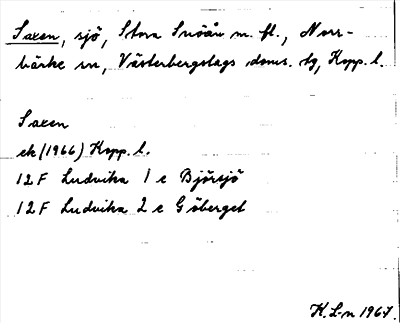 Saxen, sjö, Stora Snöån m. fl., Norr-
bärke sn, Västerbergslags doms. bg, Kopp. l.
Saxen
ek (1966) Kopp. l.
12F Ludvika 1 c Björsjö
12F Ludvika 2 c Göberget
K. L-n 1967.